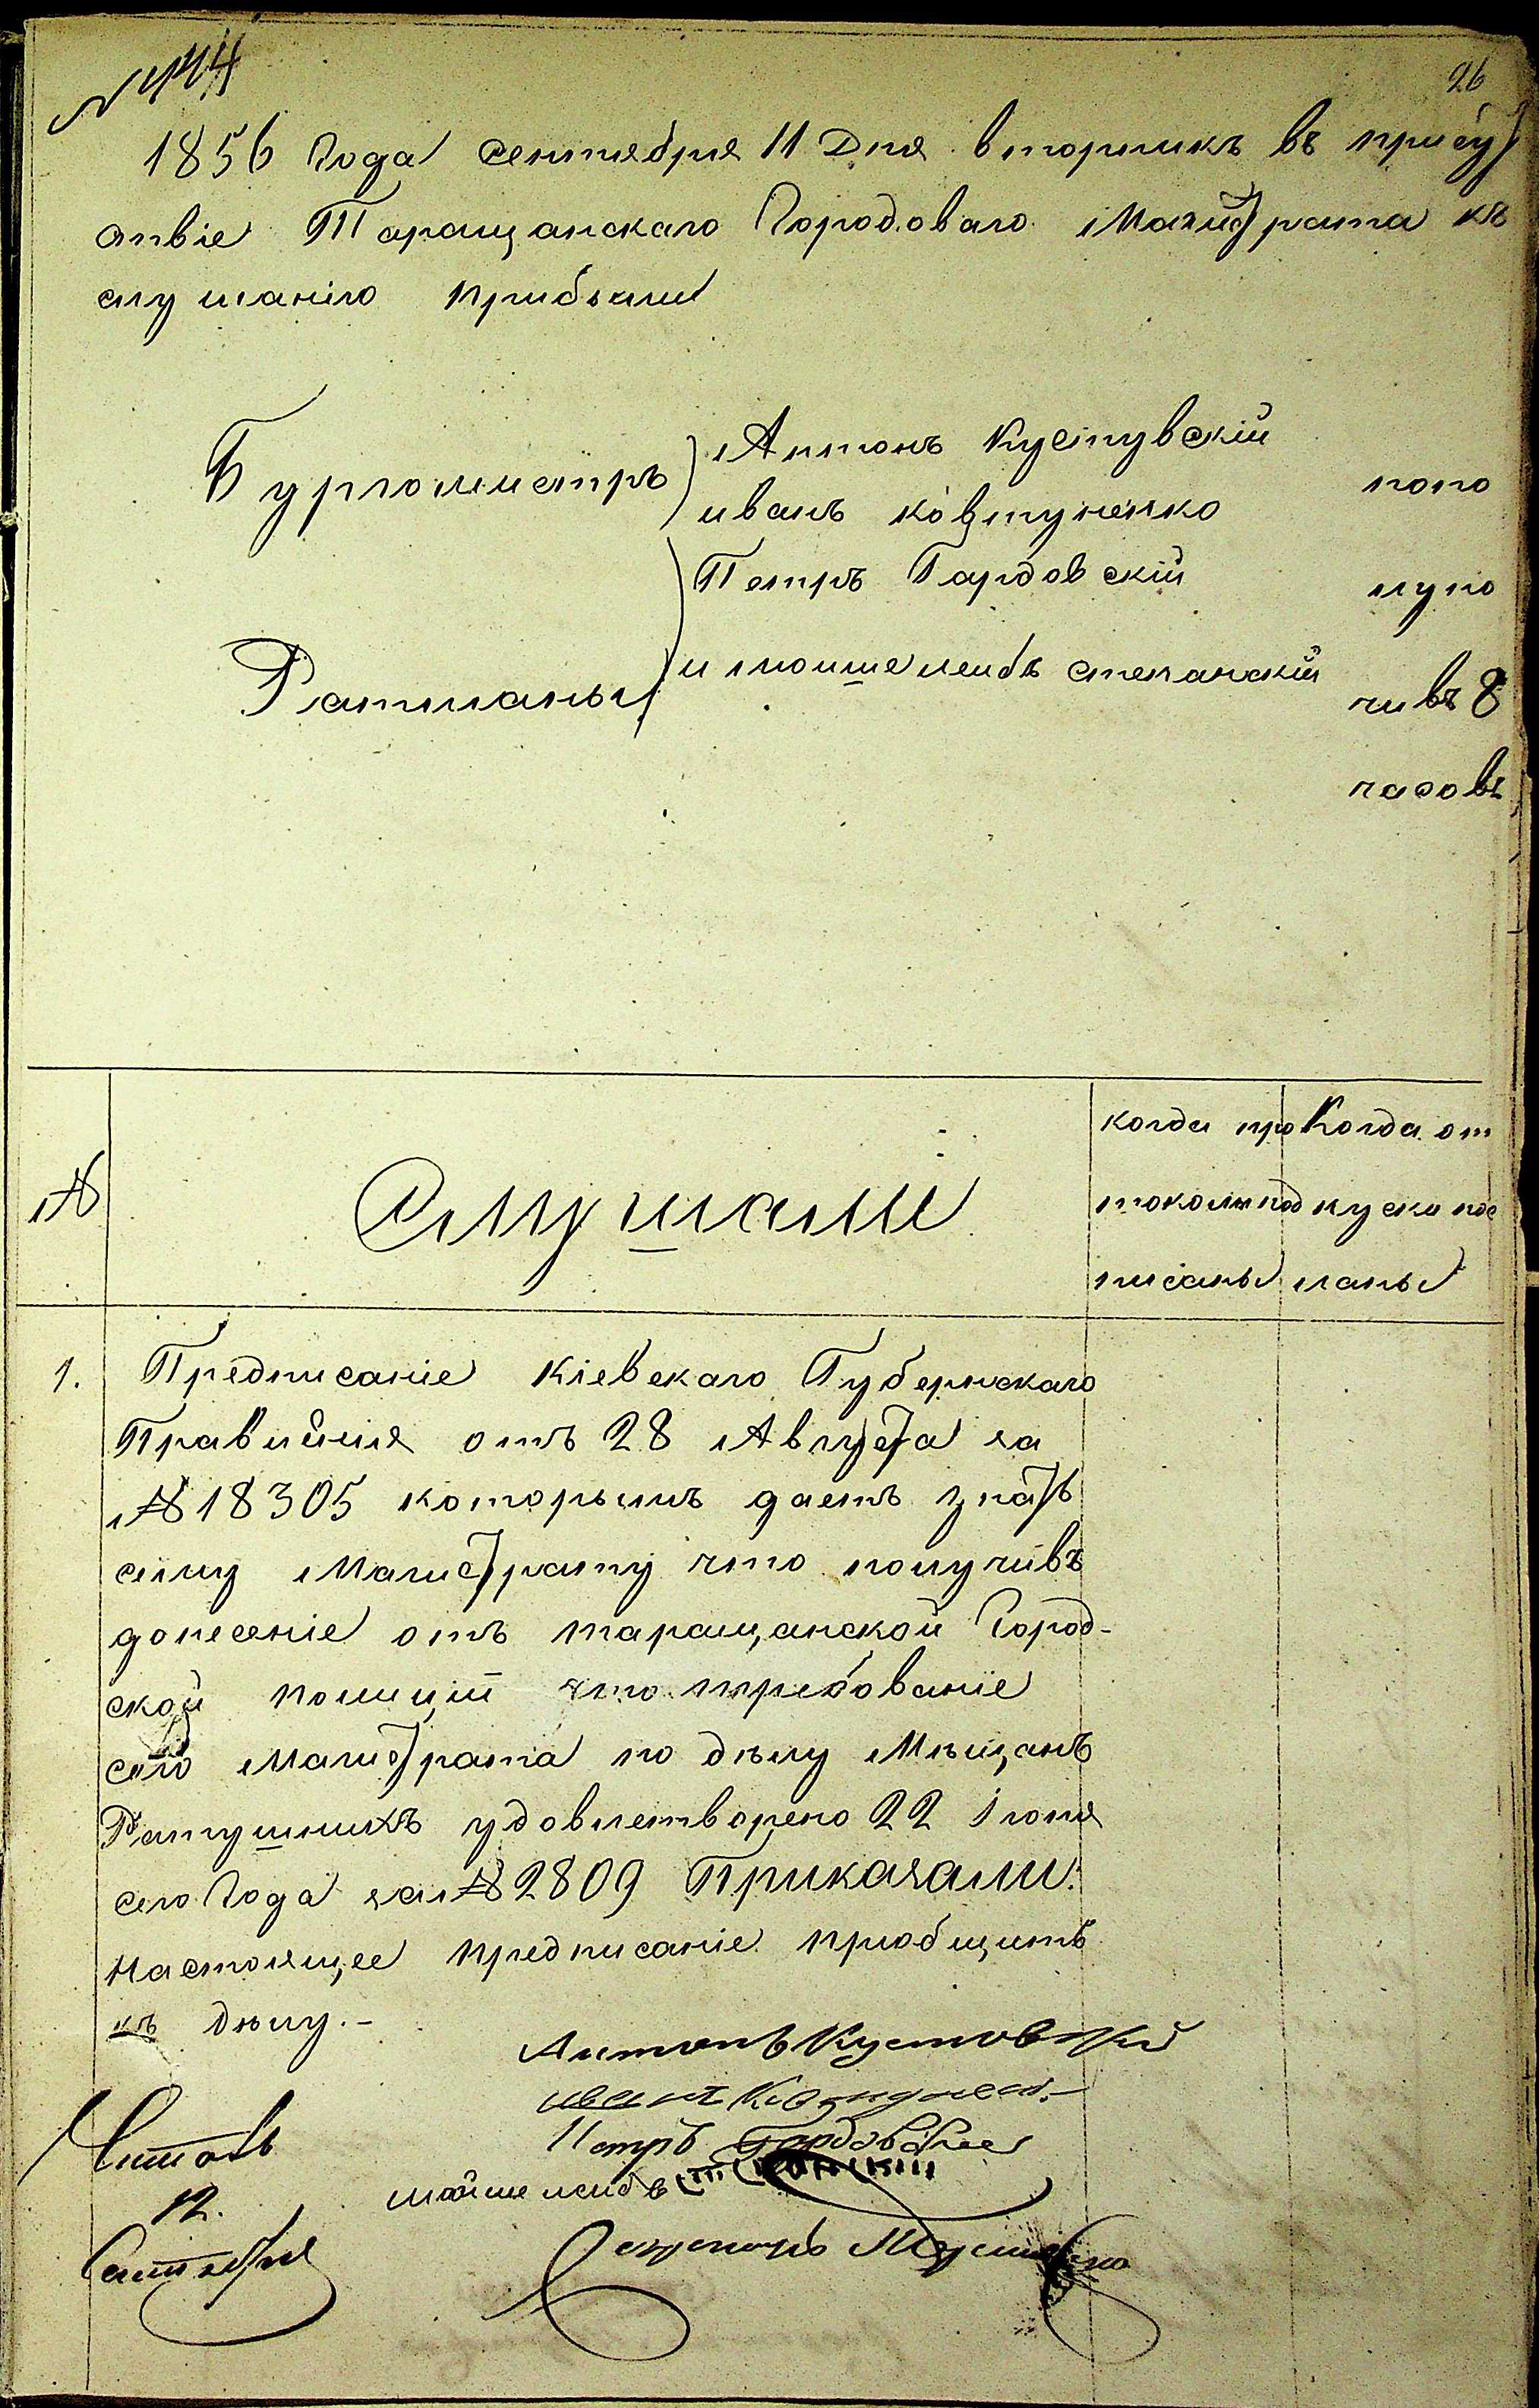 № 144
26
1856 Года сентября 11 Дня вторникъ въ присуд
ствіе Таращанскаго Городоваго Магистрата къ
слушанію прибыли
Бургомистръ
Антонъ Кустувскій
иванъ ковтуненко
Ратманы
Петръ Гардовскій
и мошше лейбъ степанскій
попо
луно
чивъ 8
часовъ
№
Слушали
когда про
токолы под
писаны
Когда от
пуски пос
ланы
1. Предписаніе Кіевскаго Губернскаго
Правленія отъ 28 Августа за
№ 18305 которымъ даетъ знать
сему Магистрату что получивъ
донесеніе отъ таращанской Город-
ской полиціи что требованіе
сего Магистрата по дѣлу Мѣщанъ
Ратушнихъ удовлетворено 22 Іюня
сего Года за № 2809 Приказали:
настоящее предписаніе пріобщить
къ дѣлу.-
Антонъ Кустовскій
иванъ
Петръ Гардовскій
мойше лейбъ
Секретарь
12.
Сентября